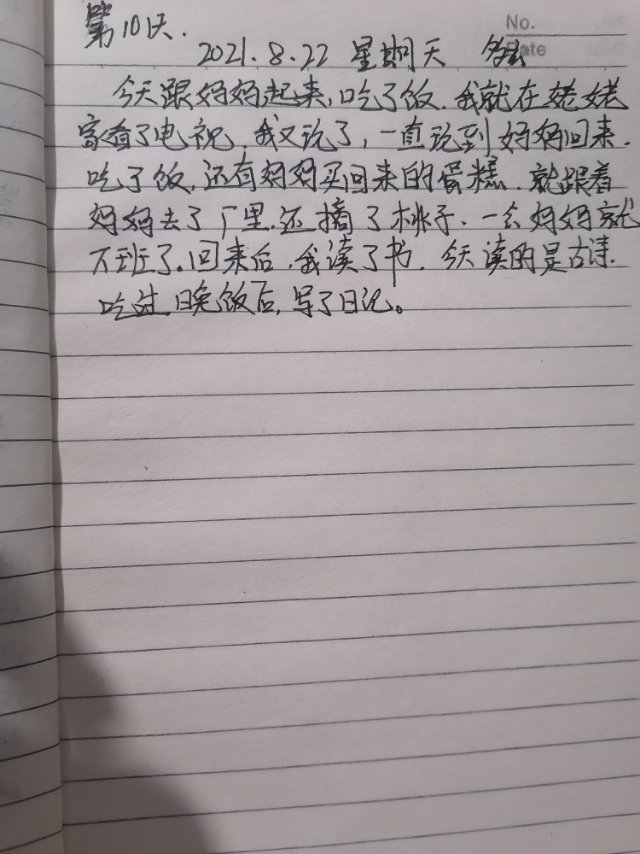 第10天.
No.
Date
2021.8.22 星期天 多云
今天跟妈妈起来,吃了饭.我就在姥姥
家看了电视.我又玩了,一直玩到妈妈回来.
吃了饭,还有妈妈买回来的蛋糕.就跟着
妈妈去了厂里.还摘了桃子.一会妈妈就
下班了.回来后.我读了书.今天读的是古诗.
吃过晚饭后,写了日记。